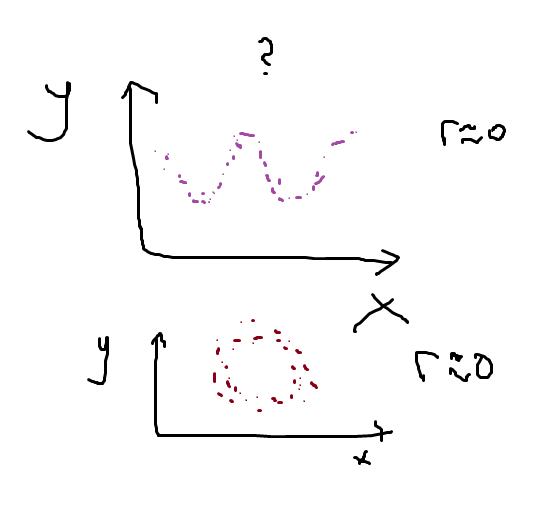 ?
y
r≈0
x
y
r≈0
x